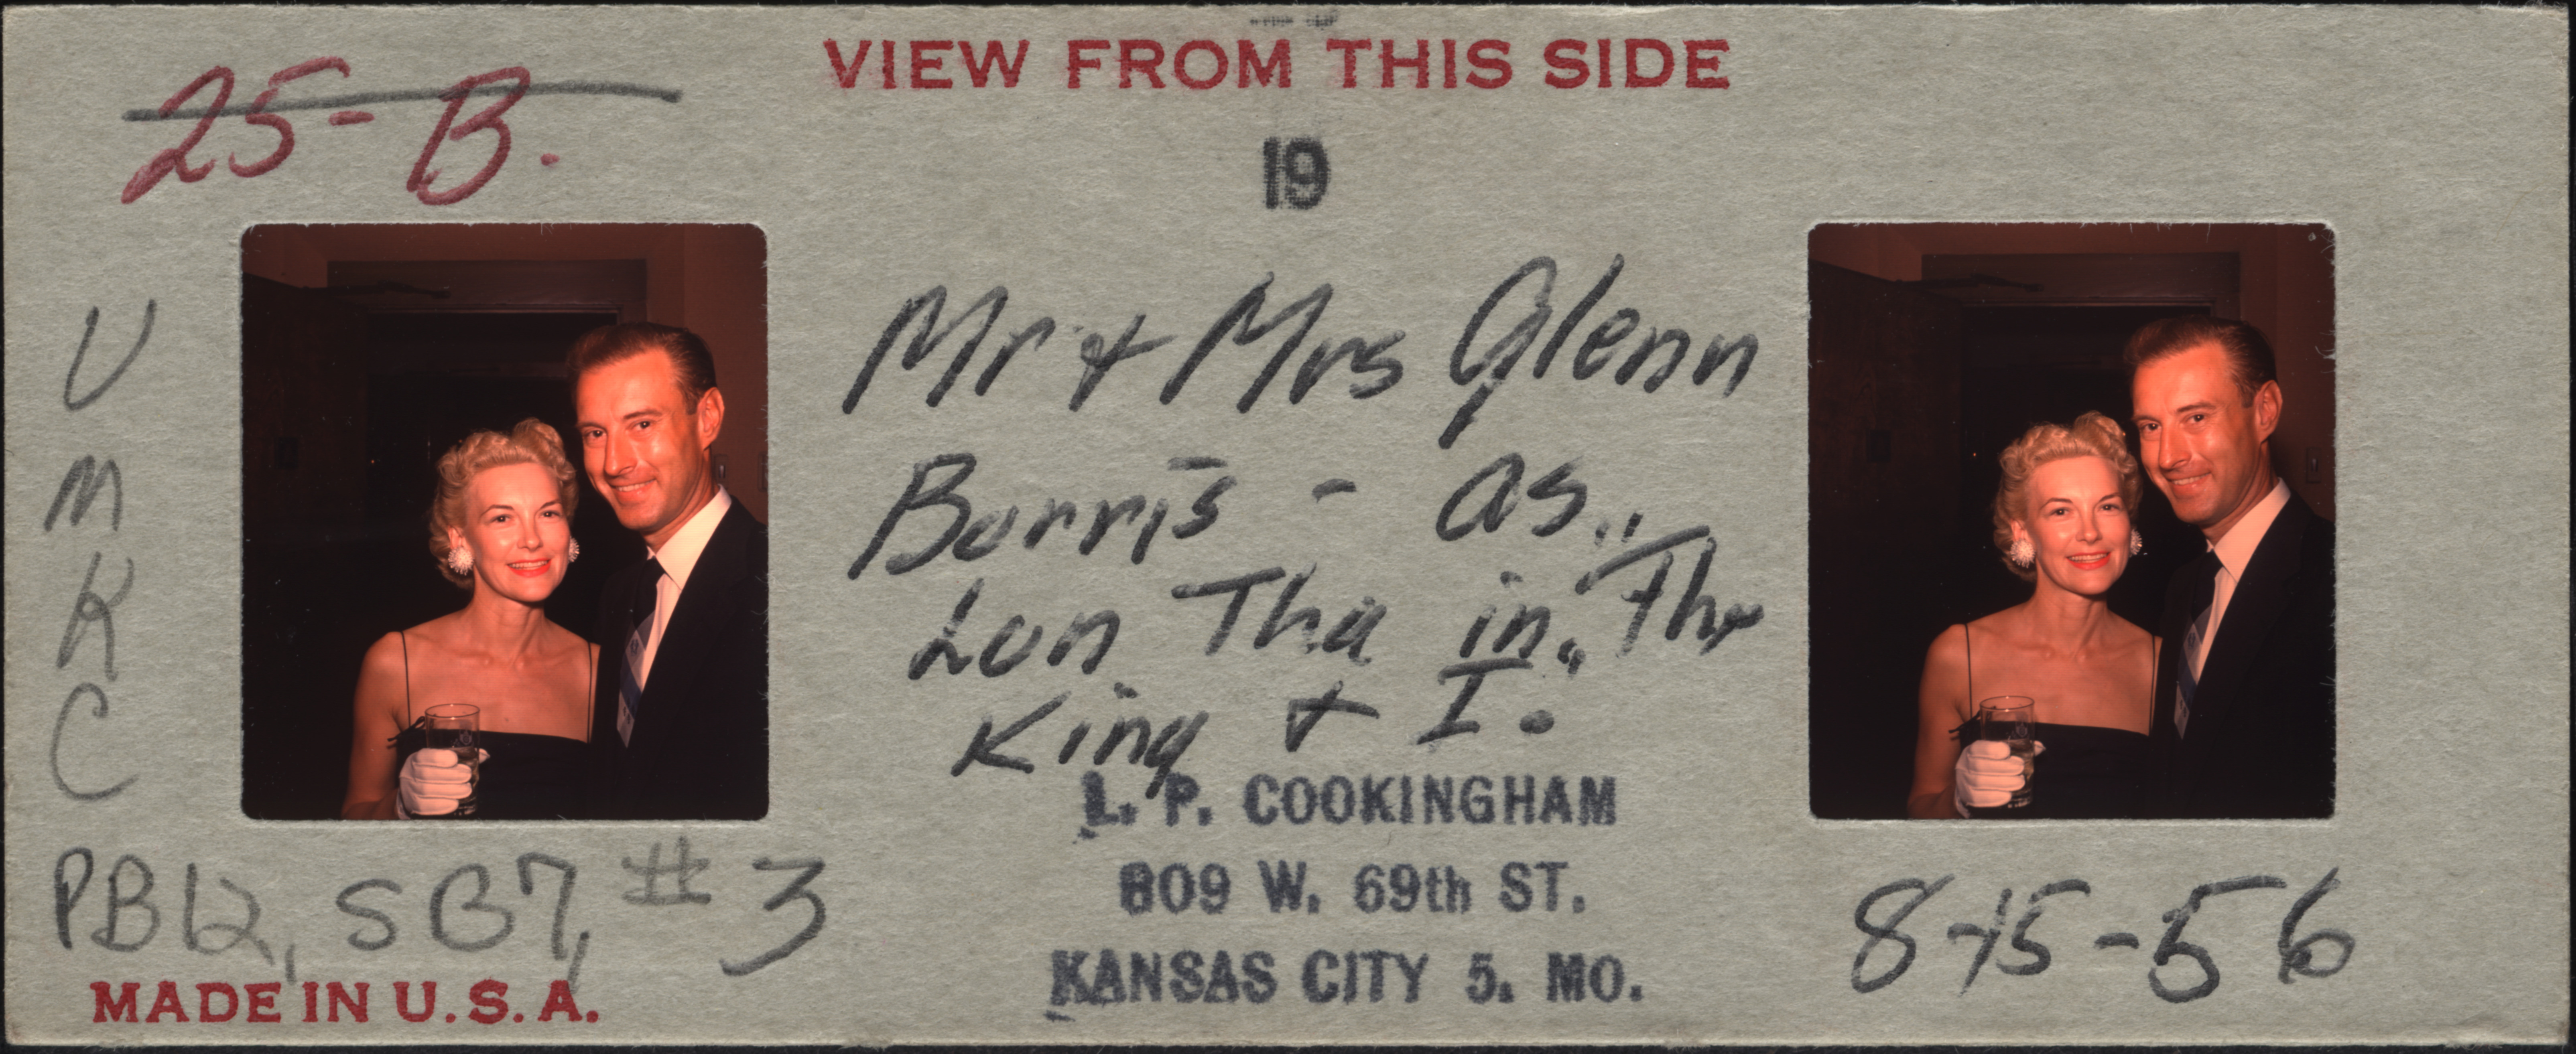 VIEW FROM THIS SIDE
25-B.
19
Mr & Mrs Glenn
Burris - as
Lun Tha in "The
King & I."
L. P. COOKINGHAM
809 W. 69th ST.
KANSAS CITY 5. MO.
U
M
K
C
PB12, SB7, #3
MADE IN U.S.A.
8-15-56